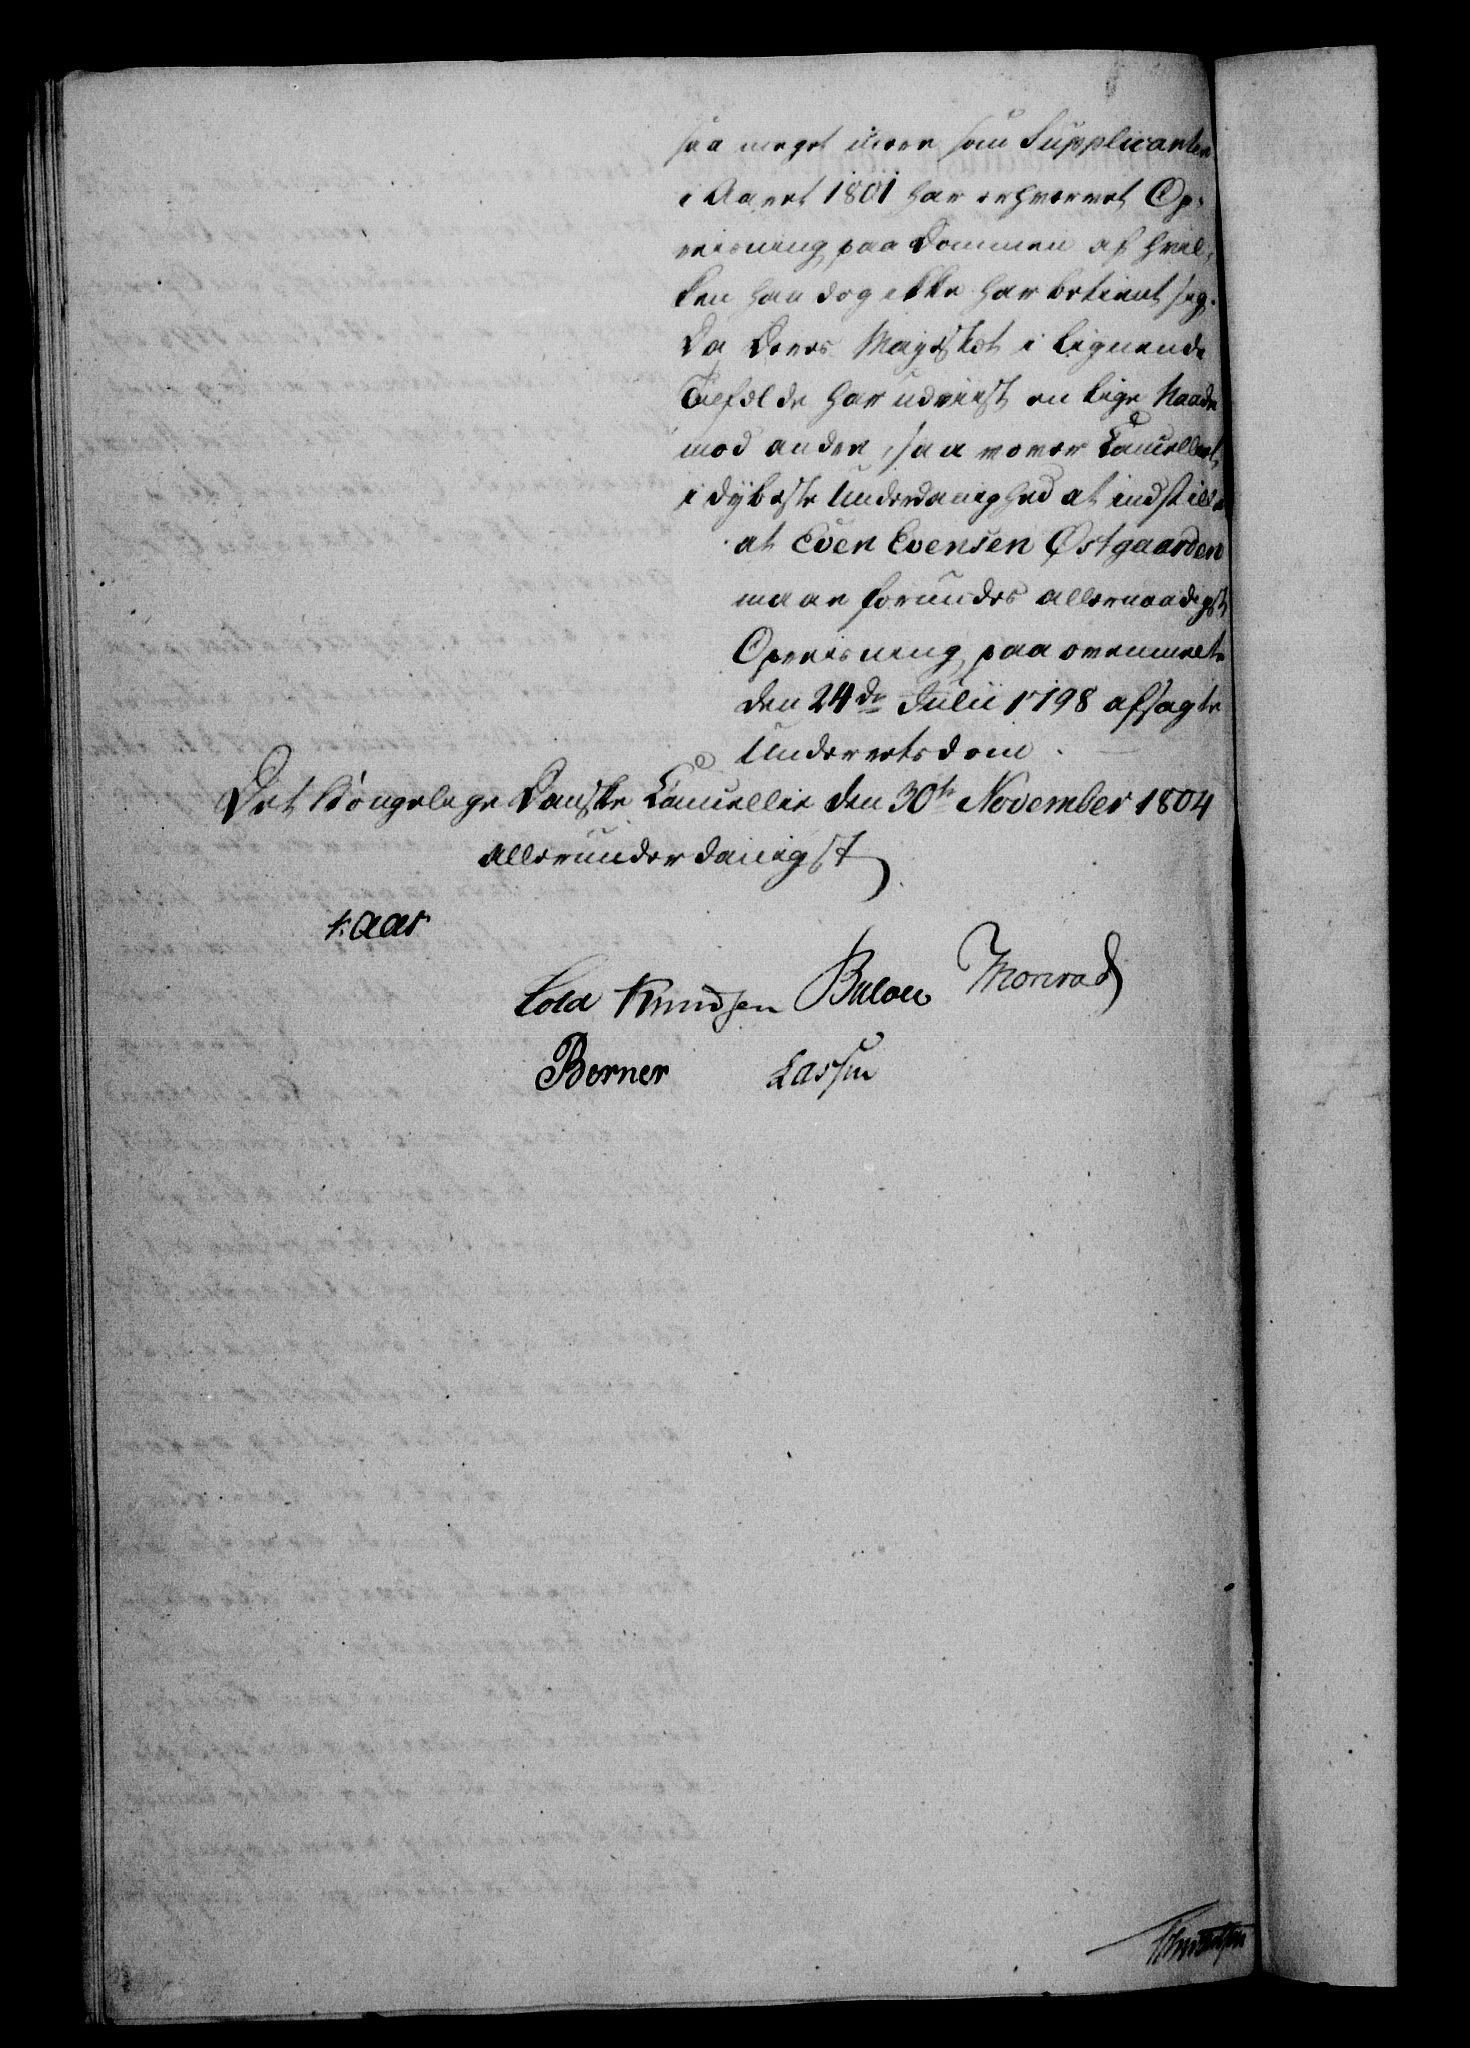 saa meget mere som Supplicanten
i Aaret 1801 har erhvervet Op-
reisning paa Dommen af hvil-
ken han dog ikke har betient sig.
Da Deres Majestæt i lignende
Tilfælde har udviist en lige Naade
mod andre, saa vover Cancelliet
i dybeste Underdanighed at indstille
at Even Evensen Østgaarden
maae forundes allernaadigst
Opreisning paa ovenmeldte
den 24de Julii 1798 afsagte
Underretsdom.
Det Kongelige Danske Cancellie den 30te November 1804
allerunderdanigst
Kaas
Cold Knudsen Bülow Monrad
Berner Lassen
Knudsen